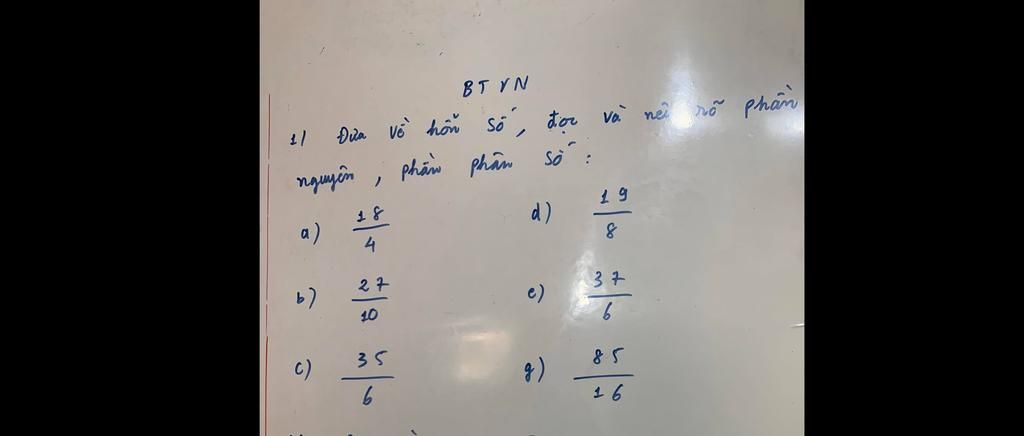 BTVN
1/ Đưa về hỗn số, đọc và nêu rõ phần
nguyên, phần phân số:
a) 18/4 d) 19/8
b) 27/10 e) 37/6
c) 35/6 g) 85/16